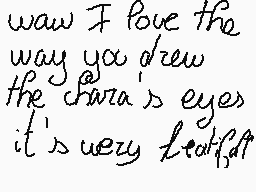 waw I love the
way you drew
the chara's eyes
it's very beatifull